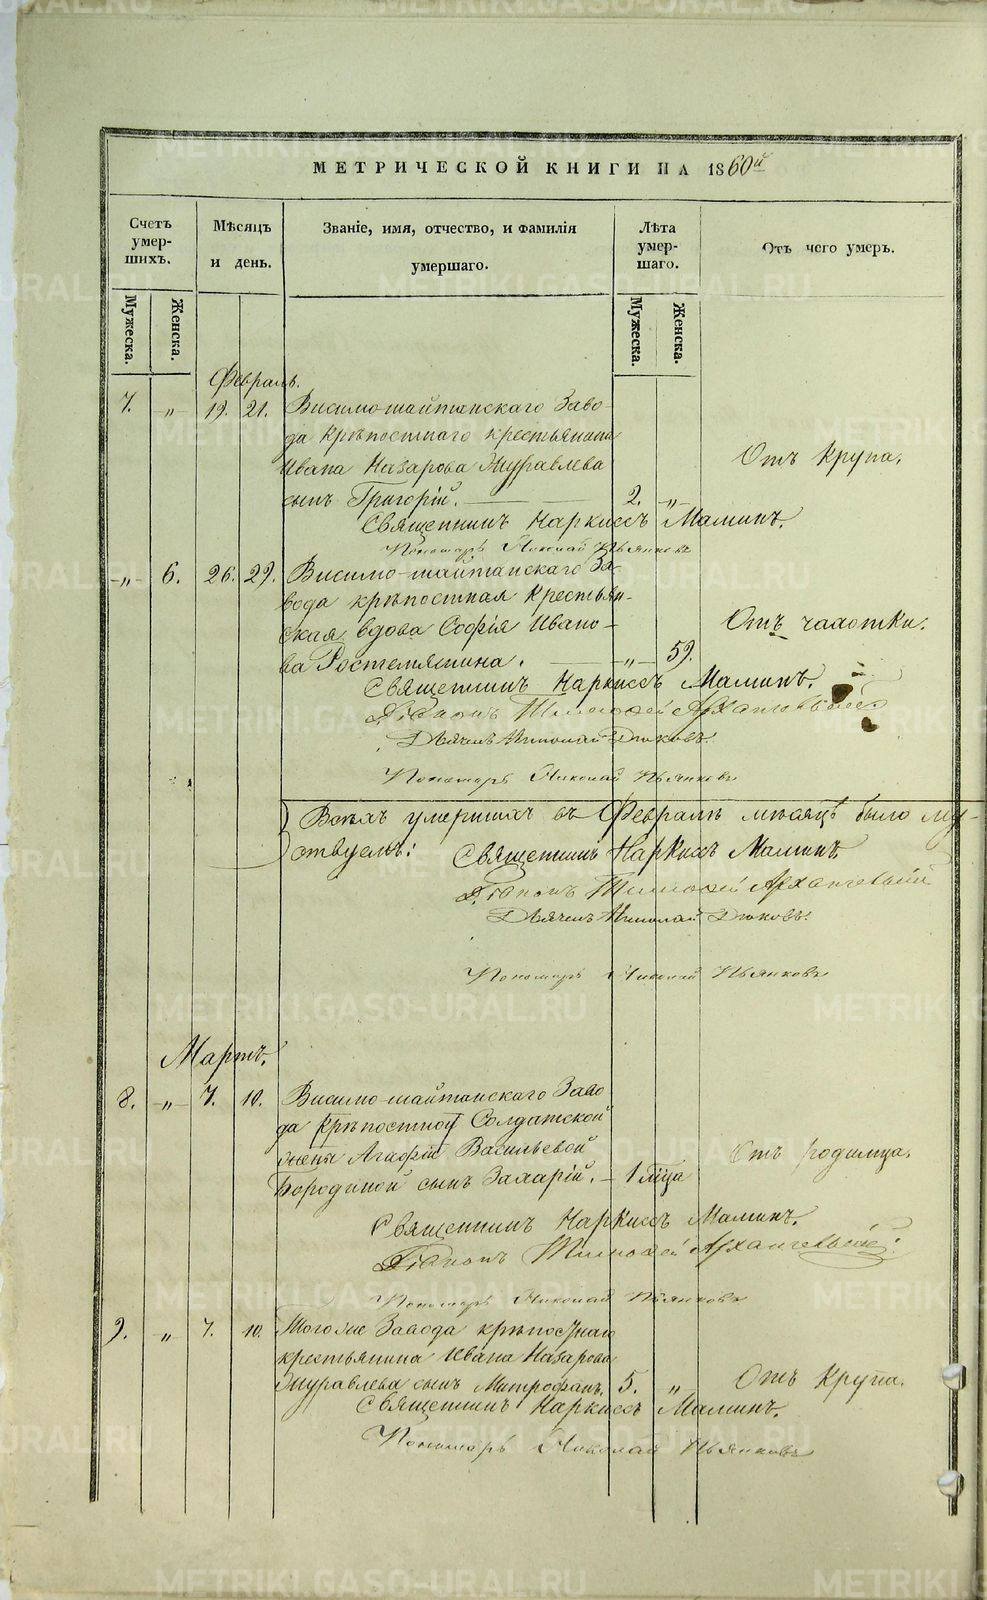 МЕТРИЧЕСКОЙ КНИГИ НА 1860й
Счетъ умер-шихъ.
Мѣсяцъ и день.
Званіе, имя, отчество, и фамилія умершаго.
Лѣта умер-шаго.
Отъ чего умеръ.
Мужеска.
Женска.
Мужеска.
Женска.
Февраль.
7. „ 19. 21. Висимо-шайтанскаго Заво-
да крѣпостнаго крестьянина
Ивана Назарова Журавлева
Отъ крупа.
сынъ Григорій. 2. „
Священникъ Наркиссъ Маминъ.
Пономарь Николай Пьянковъ
„ 6. 26. 29. Висимо-шайтанскаго За-
вода крѣпостная крестьян-
ская вдова Софія Ивано-
Отъ чахотки.
ва „ 59.
Священникъ Наркиссъ Маминъ.
Діаконъ Тимофей Архангельскій
Дьячекъ Николай Дюковъ.
Пономарь Николай Пьянковъ
Всѣхъ умершихъ въ Февралѣ мѣсяцѣ было му-
Священникъ Наркиссъ Маминъ
Діаконъ Тимофей Архангельскій
Дьячекъ Николай Дюковъ.
Пономарь Николай Пьянковъ
Мартъ.
8. „ 7. 10. Висимо-шайтанскаго Заво
да крѣпостной Солдатской
жены Агафіи Васильевой
Отъ родимца.
Бородиной сынъ Захарій. 1 м͠ца
Священникъ Наркиссъ Маминъ.
Діаконъ Тимофей Архангельскій.
Пономарь Николай Пьянковъ
9. „ 7. 10. Тогоже Завода крѣпостнаго
крестьянина Ивана Назарова
Журавлева сынъ Митрофанъ. 5. „ Отъ крупа.
Священникъ Наркиссъ Маминъ.
Пономарь Николай Пьянковъ
METRIKI.GASO-URAL.RU